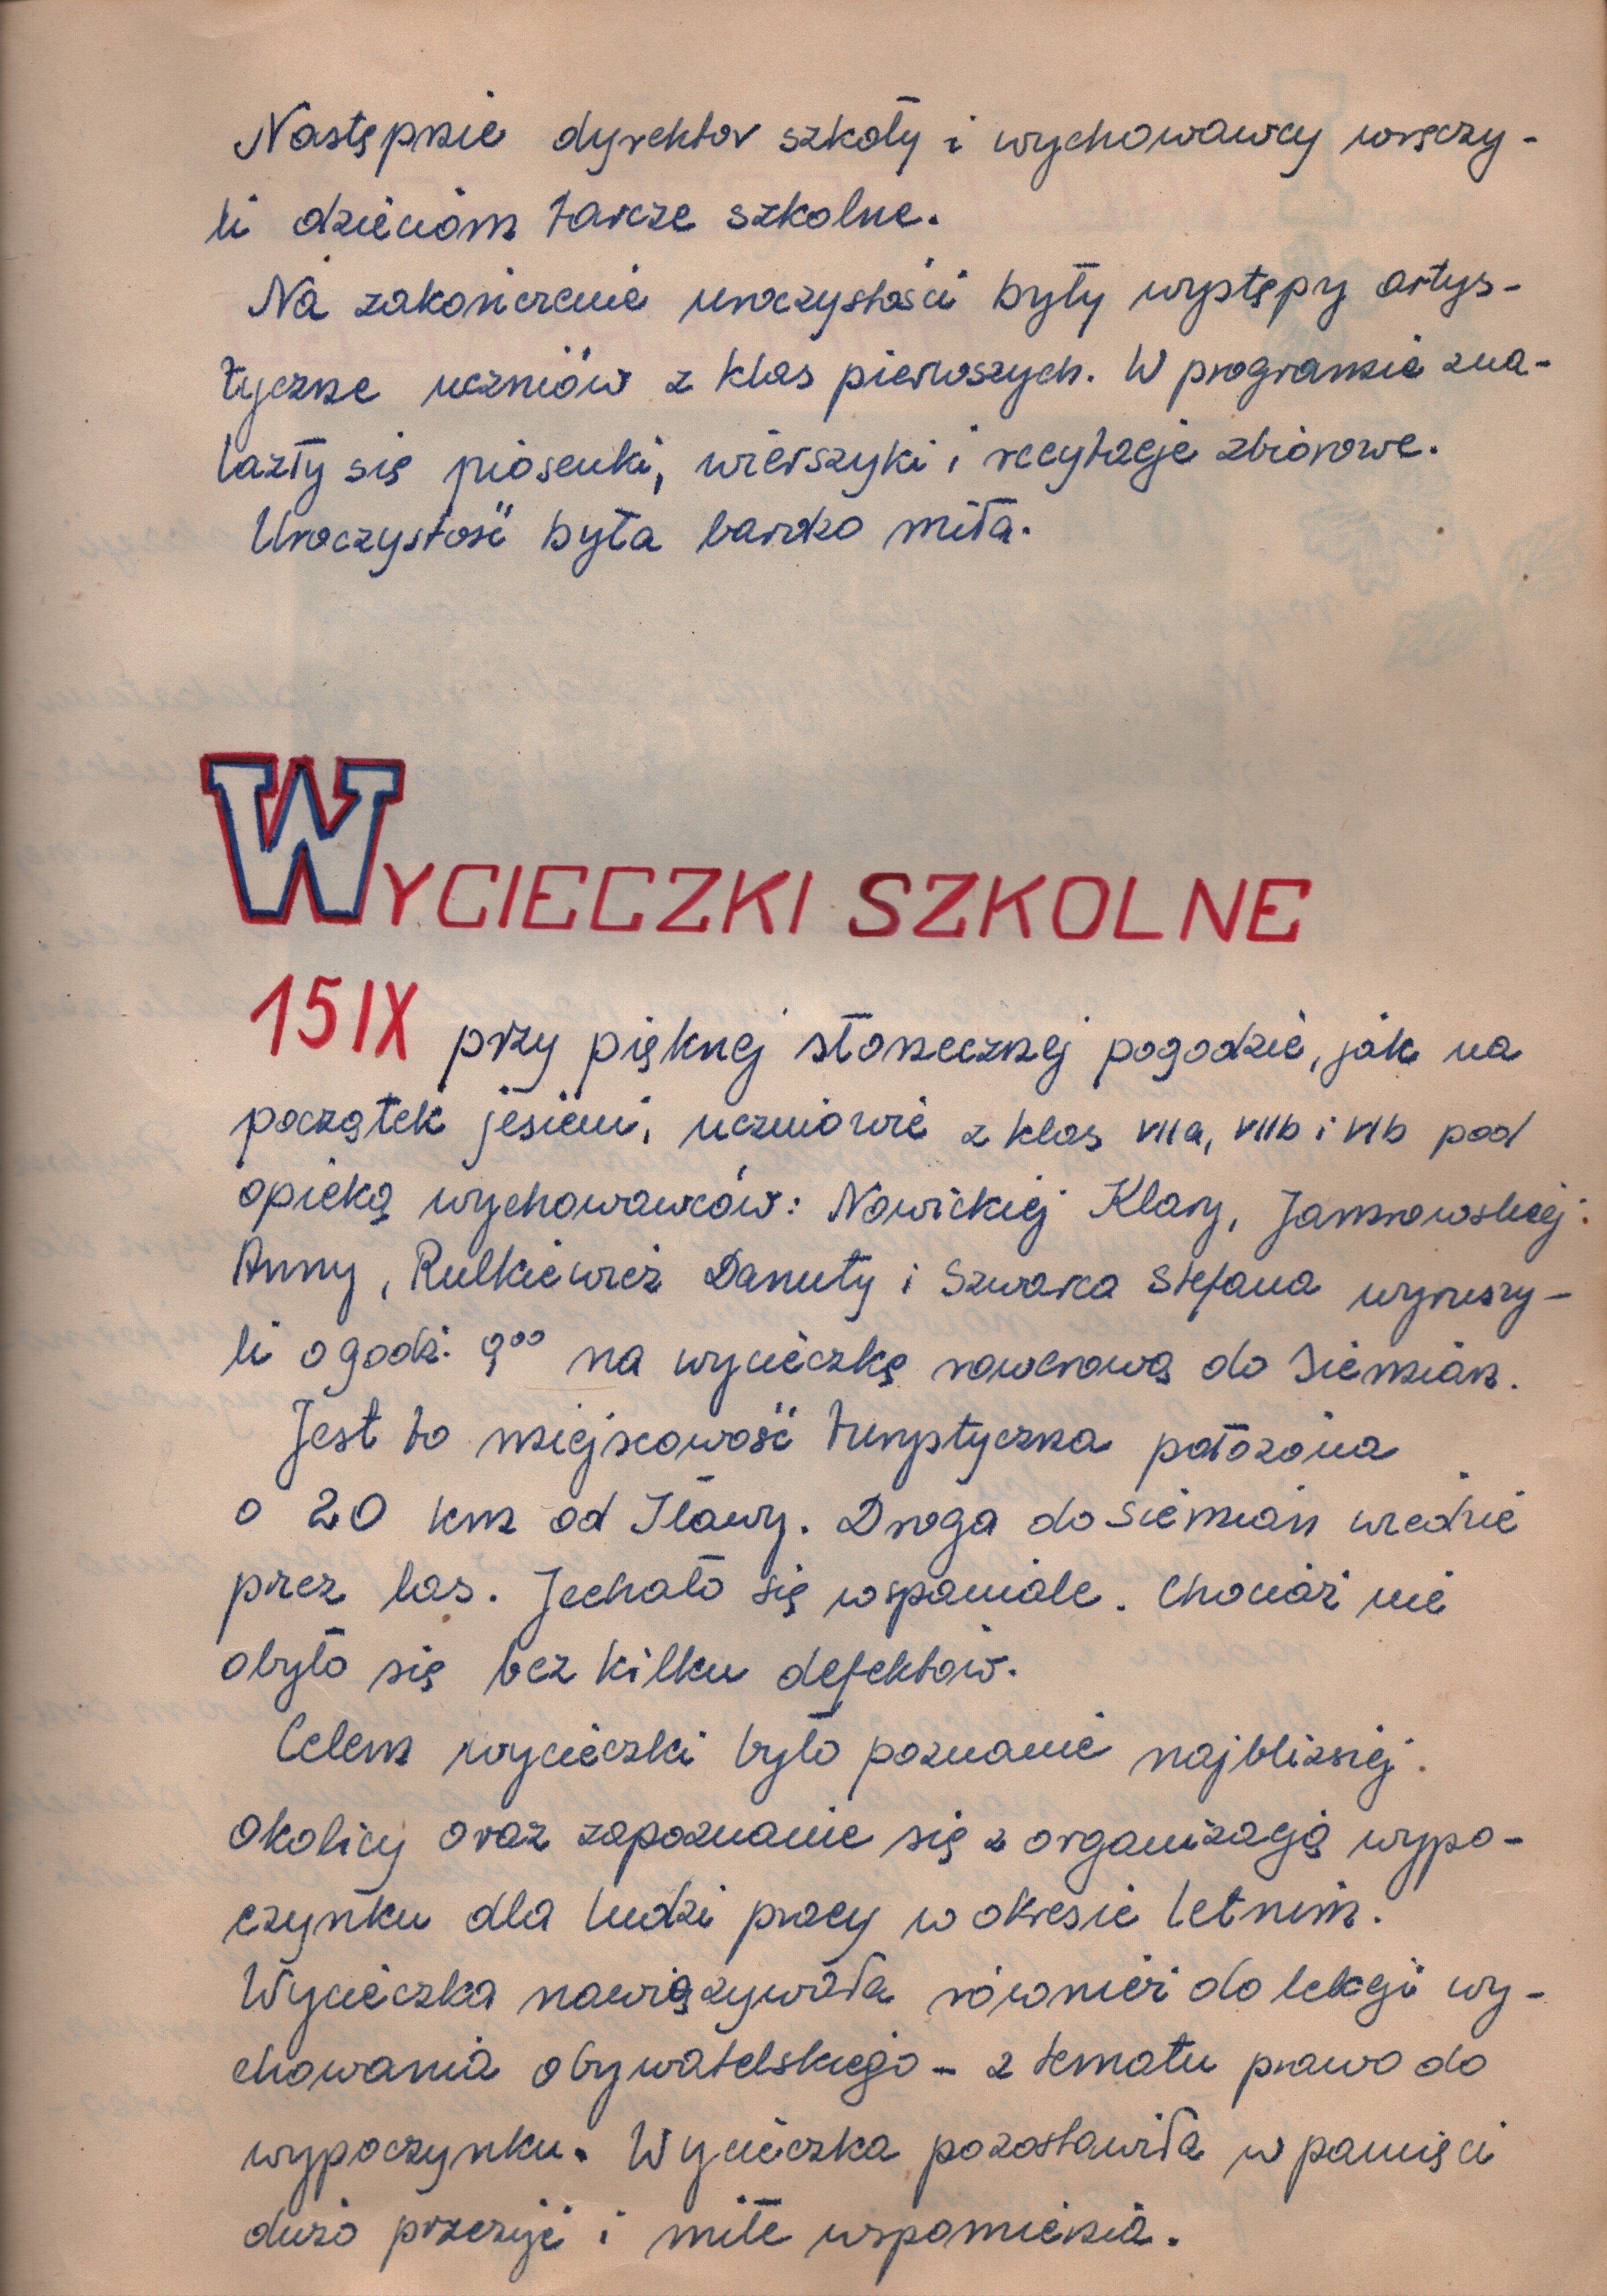 Następnie dyrektor szkoły i wychowawcy wręczy-
li dzieciom tarcze szkolne.
Na zakończenie uroczystości były występy artys-
tyczne uczniów z klas pierwszych. W programie zna-
lazły się piosenki, wierszyki i recytacje zbiorowe.
Uroczystość była bardzo miła.
WYCIECZKI SZKOLNE
15 IX przy pięknej słonecznej pogodzie, jak na
początek jesieni, uczniowie z klas VIIa, VIIb i VIb pod
opieką wychowawców: Nowickiej Klary, Jamrowskiej
Anny, Rulkiewicz Danuty i Szwarca Stefana wyruszy-
li o godz. 9⁰⁰ na wycieczkę rowerową do Siemian.
Jest to miejscowość turystyczna położona
o 20 km od Iławy. Droga do Siemian wiedzie
przez las. Jechało się wspaniale. Chociaż nie
obyło się bez kilku defektów.
Celem wycieczki było poznanie najbliższej
okolicy oraz zapoznanie się z organizacją wypo-
czynku dla ludzi pracy w okresie letnim.
Wycieczka nawiązywała również do lekcji wy-
chowania obywatelskiego - z tematu prawo do
wypoczynku. Wycieczka pozostawiła w pamięci
dużo przeżyć i miłe wspomnienia.